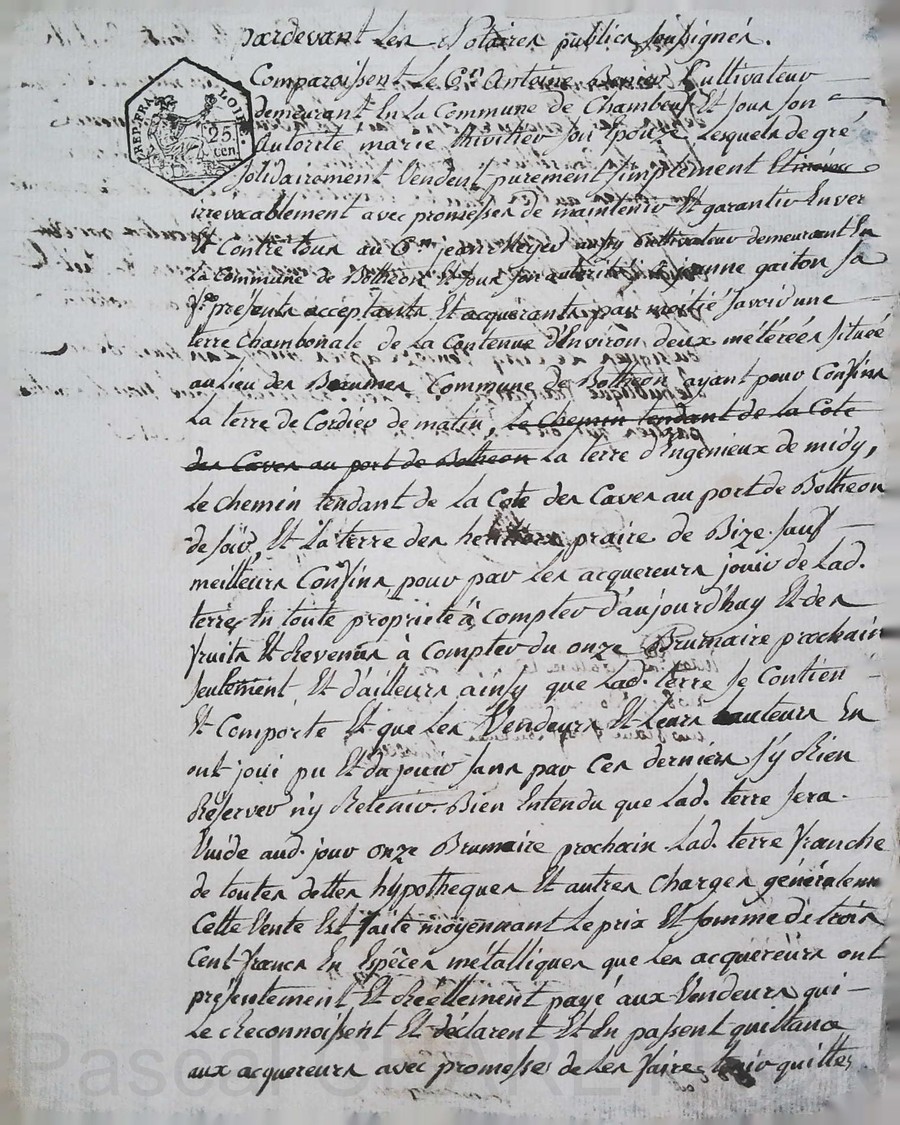 pardevant Les Notaires publics soussignés.
Comparoissent Le Cen Antoine Cultivateur
demeurant En La Commune de Chambeuf Et sous son
autorité marie son Epouze Lesquels de gré
solidairement Vendent purement simplement Et
irrevocablement avec promesses de maintenir Et garantir Enver
Et Contre tous au Cen jean aussy Cultivateur demeurant En
La Commune de Botheon Et sous son autorité à jeanne gaiton sa
fe présents acceptants Et acquerants par moitié savoir une
terre Chambonale de La Contenue d'Environ deux méterées située
au Lieu des Commune de Botheon ayant pour Confins
La terre de Cordier de matin, Le Chemin tendant de La Cote
des Caves au port de Botheon La terre d'Engenieux de midy,
Le chemin tendant de La Cote des Caves au port de Botheon
de soir, Et La terre des praire de Bize sauf
meilleurs Confins pour par Les acquereurs jouir de Lad.
terre En toute proprieté à compter d'aujourd'huy Et des
fruits Et Revenus à Compter du onze Brumaire prochain
seulement Et d'ailleurs ainsy que Lad. terre se Contien
Et Comporte Et que Les Vendeurs Et Leurs auteurs En
ont joui pu Et du jouir sans par Ces derniers s'y Rien
Réserver n'y Retenir. Bien Entendu que Lad. terre sera
Vuide aud. jour onze Brumaire prochain Lad. terre franche
de toutes dettes hypotheques Et autres Charges généralem
Cette Vente Est faite moyennant Le prix Et somme de trois
Cent francs En Espêces métalliques que Les acquéreurs ont
présentement Et Réellement payé aux Vendeurs qui
Le Reconnoissent Et déclarent Et En passent quittance
aux acquereurs avec promesse de Les faire tenir quittes
REP. FRA.
LOI
25
cen.
Pascal